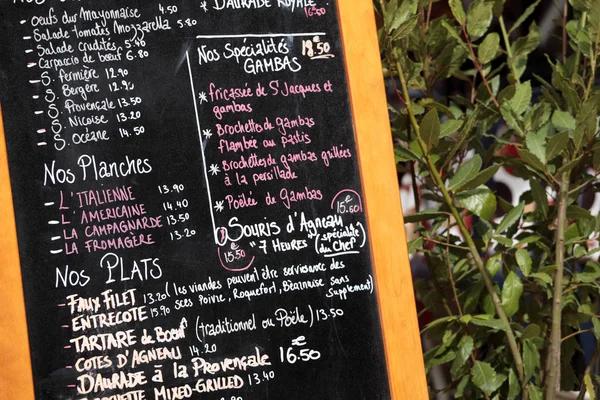 Oeufs dur Mayonnaise 4.50
Salade tomates Mozzarella 5.80
Salade crudités 5.40
Carpaccio de bœuf 6.80
S. fermière 12.90
S. Bergère 12.90
S. Provençale 13.50
S. Nicoise 13.20
S. Océane 14.50
Nos Planches
L'ITALIENNE 13.90
L'AMERICAINE 14.40
LA CAMPAGNARDE 13.50
LA FROMAGÈRE 13.20
* DAURADE ROYALE
16.50
Nos Spécialités 18.50
GAMBAS
* Fricassée de S Jacques et
gambas
* Brochettes de gambas
flambée au pastis
* Brochettes de gambas grillées
à la persillade
* Poêlée de Gambas
15.50€
Souris d'Agneau
* 7 HEURES (spécialité
du Chef)
15.50€
Nos PLATS
- FAUX FILET 13.20 (les viandes peuvent être servies avec des
- ENTRECOTE 15.90 sces Poivre, Roquefort, Béarnaise sans
Supplement)
- TARTARE de Bœuf (traditionnel ou Poêlé) 13.50
- COTES D'AGNEAU 14.20
- DAURADE à la Provençale 16.50€
MIXED-GRILLED 13.40